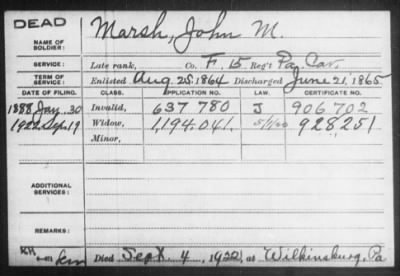 DEAD
NAME OF SOLDIER: Marsh, John M.
SERVICE: Late rank, Co. F. 15 Reg't Pa. Cav.
TERM OF SERVICE: Enlisted Aug. 25. 1864 Discharged June 21, 1865
DATE OF FILING. CLASS. APPLICATION NO. LAW. CERTIFICATE NO.
1888 Jan. 30 Invalid, 637 780 J 906,702
1922 Sep. 19 Widow, 1,194.041. 928,251
Minor,
ADDITIONAL SERVICES:
REMARKS:
Died Sept 4, 1922, at Wilkinsburg, Pa